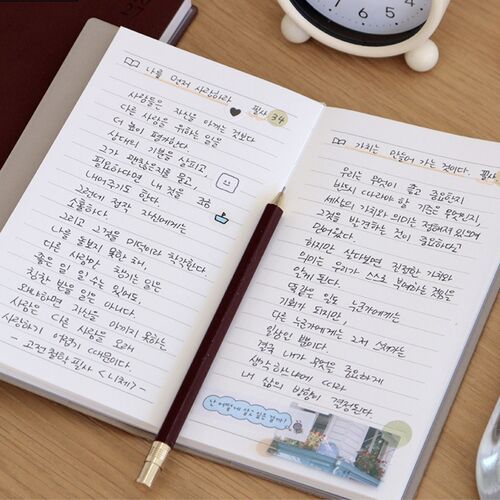 나를 먼저 사랑하라 필사 34
사람들은 자신을 아끼는 것보다
다른 사람을 위하는 일을
더 높이 평가한다.
상대의 기분을 살피고,
그가 괜찮은지를 묻고,
필요하다면 내 것을 조금
내어주기도 한다.
그런데 정작 자신에게는
소홀하다.
그리고 그것을 미덕이라 착각한다.
나를 돌보지 못한 채,
다른 사람만 챙기는 일은
좋은 일일 수는 있어도,
친절한 일은 아니다.
왜냐하면 자신을 아끼지 못하는
사람은 다른 사람을 오래
사랑하기 어렵기 때문이다.
- 고전 철학 필사 <니체> -
가치는 만들어 가는 것이다. 필사
우리는 무엇이 좋고 중요한지
반드시 따라야 할 기준은 무엇인지,
세상의 가치와 의미는 정해져 있으며
그것을 발견하는 것이 중요하다고
믿어왔다.
하지만 살다보면 진정한 가치와
의미는 우리가 스스로 부여하는 것임을
알게 된다.
똑같은 일도 누군가에게는
기회가 되지만,
다른 누군가에게는 그저 스쳐가는
일상인 뿐이다.
결국 내가 무엇을 중요하게
생각하느냐에 따라
내 삶의 방향이 결정된다.
난 어떻게 살고 있는 걸까?